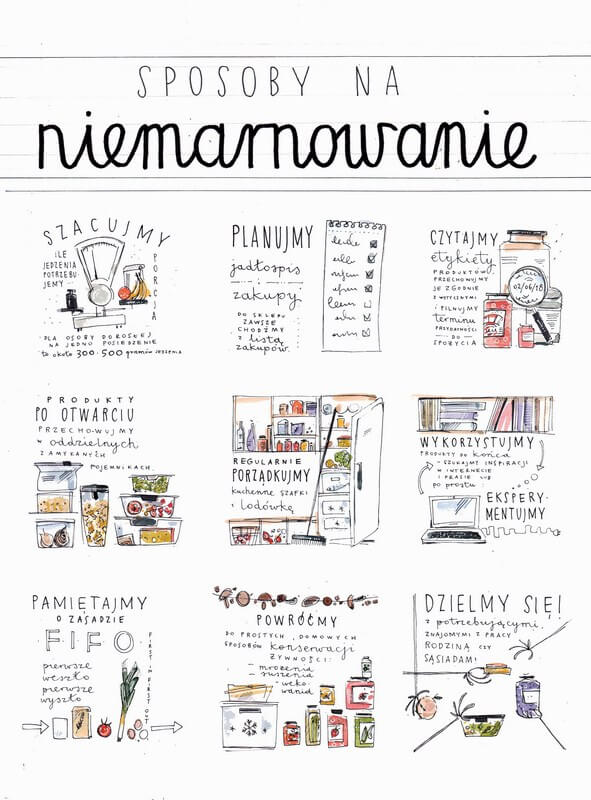 SPOSOBY NA
niemarnowanie
SZACUJMY
ILE
JEDZENIA
POTRZEBU
JEMY -
PORCJA
DLA OSOBY DOROSŁEJ
NA JEDNO POSIEDZENIE
to około 300-500 gramów jedzenia
PLANUJMY
jadłospis
i
zakupy
DO SKLEPU
ZAWSZE
CHODŹMY
z listą
zakupów.
CZYTAJMY
etykiety
PRODUKTÓW
PRZECHOWUJMY
JE ZGODNIE
Z WYTYCZNYMI
I PILNUJMY
terminu
PRZYDATNOŚCI
DO
SPOŻYCIA
02/06/18
PRODUKTY
PO OTWARCIU
PRZECHOWUJMY
w oddzielnych
ZAMYKANYCH
POJEMNIKACH.
REGULARNIE
PORZĄDKUJMY
kuchenne szafki
i lodówkę
WYKORZYSTUJMY
PRODUKTY DO końca
- SZUKAJMY INSPIRACJI
W INTERNECIE
I PRASIE LUB
po prostu:
EKSPERY-
MENTUJMY
PAMIĘTAJMY
O ZASADZIE
FIFO
pierwsze
weszło
pierwsze
wyszło
FIRST IN FIRST OUT
POWRÓĆMY
DO PROSTYCH, DOMOWYCH
SPOSOBÓW konserwacji
ŻYWNOŚCI:
- mrożenia
- suszenia
- weko-
wania
DZIELMY SIĘ!
z potrzebującymi,
ZNAJOMYMI Z PRACY
RODZINĄ CZY
SĄSIADAMI